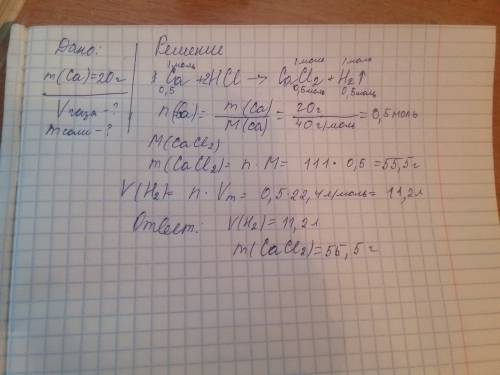 Дано:
m(Ca)=20г
Vгаза-?
mсоли-?
Решение
1моль 1моль 1моль
Ca+2HCl→CaCl2+H2↑
0,5 0,5моль 0,5моль
n(Ca)=m(Ca)/M(Ca)=20г/40г/моль=0,5моль
M(CaCl2)
m(CaCl2)=n·M=111·0,5=55,5г
V(H2)=n·Vm=0,5·22,4л/моль=11,2л
Ответ: V(H2)=11,2л
m(CaCl2)=55,5г